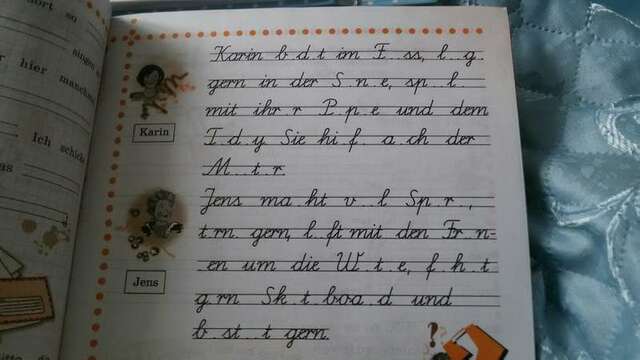 dort so
singen
r hier manches
Ich schicke
as
Karin b d t im F ss, l g
gern in der S n e, sp l
mit ihr r P p e und dem
T d y. Sie hi f a ch der
M t r.
Karin
Jens ma ht v l Sp r ,
t rn gern, l ft mit den Fr n-
en um die W t e, f h t
g rn Sk t boa d und
b st t gern.
Jens